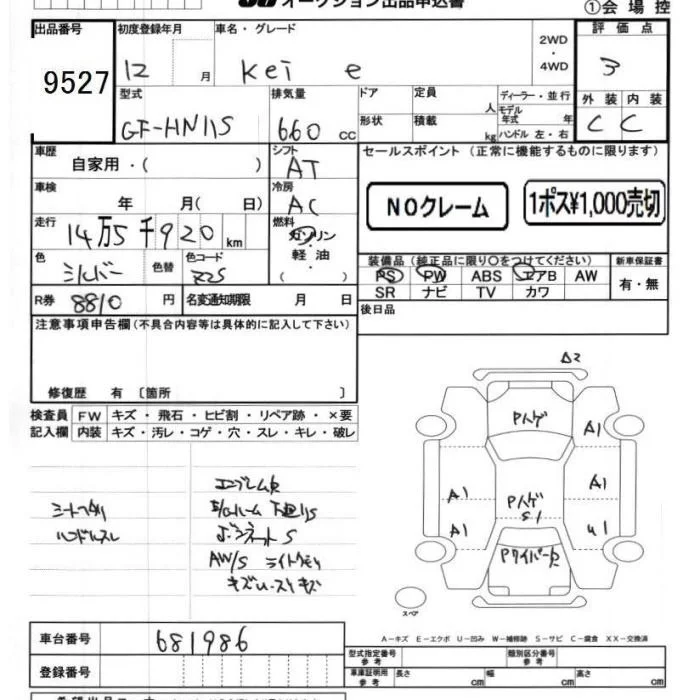 オークション出品申込書
①会場控
出品番号
9527
初度登録年月
12 月
車名・グレード
Kei e
2WD
・
4WD
評価点
3
型式
GF-HN11S
排気量
660 cc
ドア
定員
人
形状
積載
kg
ディーラー・並行
モデル
年式 年
ハンドル 左・右
外装 内装
C C
車歴
自家用・( )
シフト
AT
セールスポイント (正常に機能するものに限ります)
NOクレーム
1ポス¥1,000売切
車検
年 月( 日)
冷房
AC
走行
14万5千920 km
燃料
ガソリン
・
軽油
( )
色
シルバー
色替
色コード
Z2S
装備品 (純正品に限り○をつけてください)
PS PW ABS エアB AW
SR ナビ TV カワ
新車保証書
有・無
R券 8810 円
名変通知期限 月 日
後日品
注意事項申告欄(不具合内容等は具体的に記入して下さい)
修復歴 有 〔箇所 〕
検査員
記入欄
FW キズ・飛石・ヒビ割・リペア跡・×要
内装 キズ・汚レ・コゲ・穴・スレ・キレ・破レ
シートヘタリ
ハンドルスレ
エンブレム欠
ボンネットS
AW/S ライトクモリ
A2
Pハゲ
A1
A1
A1
Pハゲ
S1
A1
U1
Pワイパー欠
スペア
A-キズ E-エクボ U-凹み W-補修跡 S-サビ C-腐食 XX-交換済
車台番号 681986
登録番号
型式指定番号
参考
類別区分番号
参考
車庫証明用
参考
長さ cm
幅 cm
高さ cm